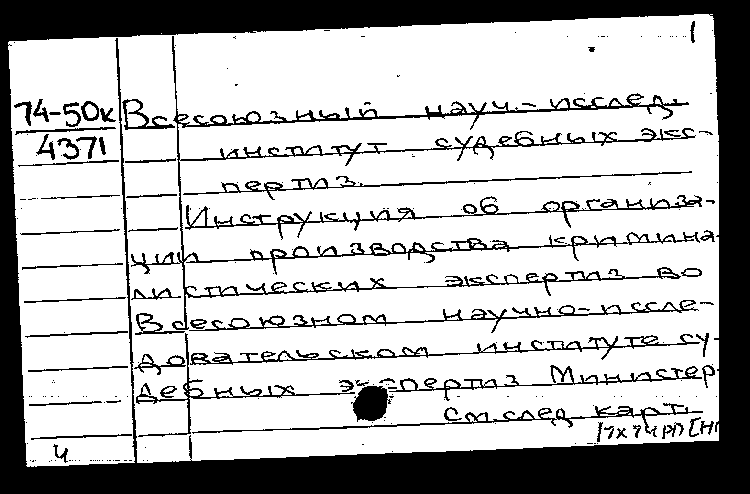 1
74-50к Всесоюзный науч.-исслед.
4371 институт судебных экс-
пертиз.
Инструкция об организа-
ции производства кримина-
листических экспертиз во
Всесоюзном научно-иссле-
довательском институте су-
дебных экспертиз Министер
см. след. карт.
ч